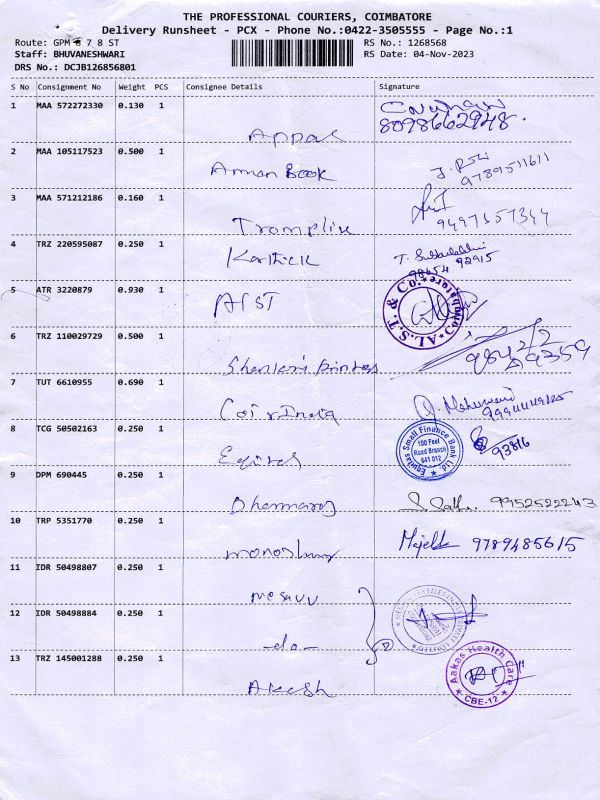 THE PROFESSIONAL COURIERS, COIMBATORE
Delivery Runsheet - PCX - Phone No.:0422-3505555 - Page No.:1
Route: GPM 6 7 8 ST
RS No.: 1268568
Staff: BHUVANESHWARI
RS Date: 04-Nov-2023
DRS No.: DCJB126856801
S No Consignment No Weight PCS Consignee Details Signature
1 MAA 572272330 0.130 1
Appas
8098662948.
2 MAA 105117523 0.500 1
Amman Book
9789511611
3 MAA 571212186 0.160 1
Trompline
4 TRZ 220595087 0.250 1
Karthick
98454 92915
5 ATR 3220879 0.930 1
A/ST
AL.S.T. & Co. Coimbatore.
6 TRZ 110029729 0.500 1
Printers
7 TUT 6610955 0.690 1
Coirindia
8 TCG 50502163 0.250 1
Equitas
Equitas Small Finance Bank Ltd.
100 Feet
Road Branch
641 012
93816
9 DPM 690445 0.250 1
Dhanmaraj
9952522243
10 TRP 5351770 0.250 1
9789485615
11 IDR 50498807 0.250 1
12 IDR 50498884 0.250 1
-do-
13 TRZ 145001288 0.250 1
Akash
Aakas Health Care
CBE-12